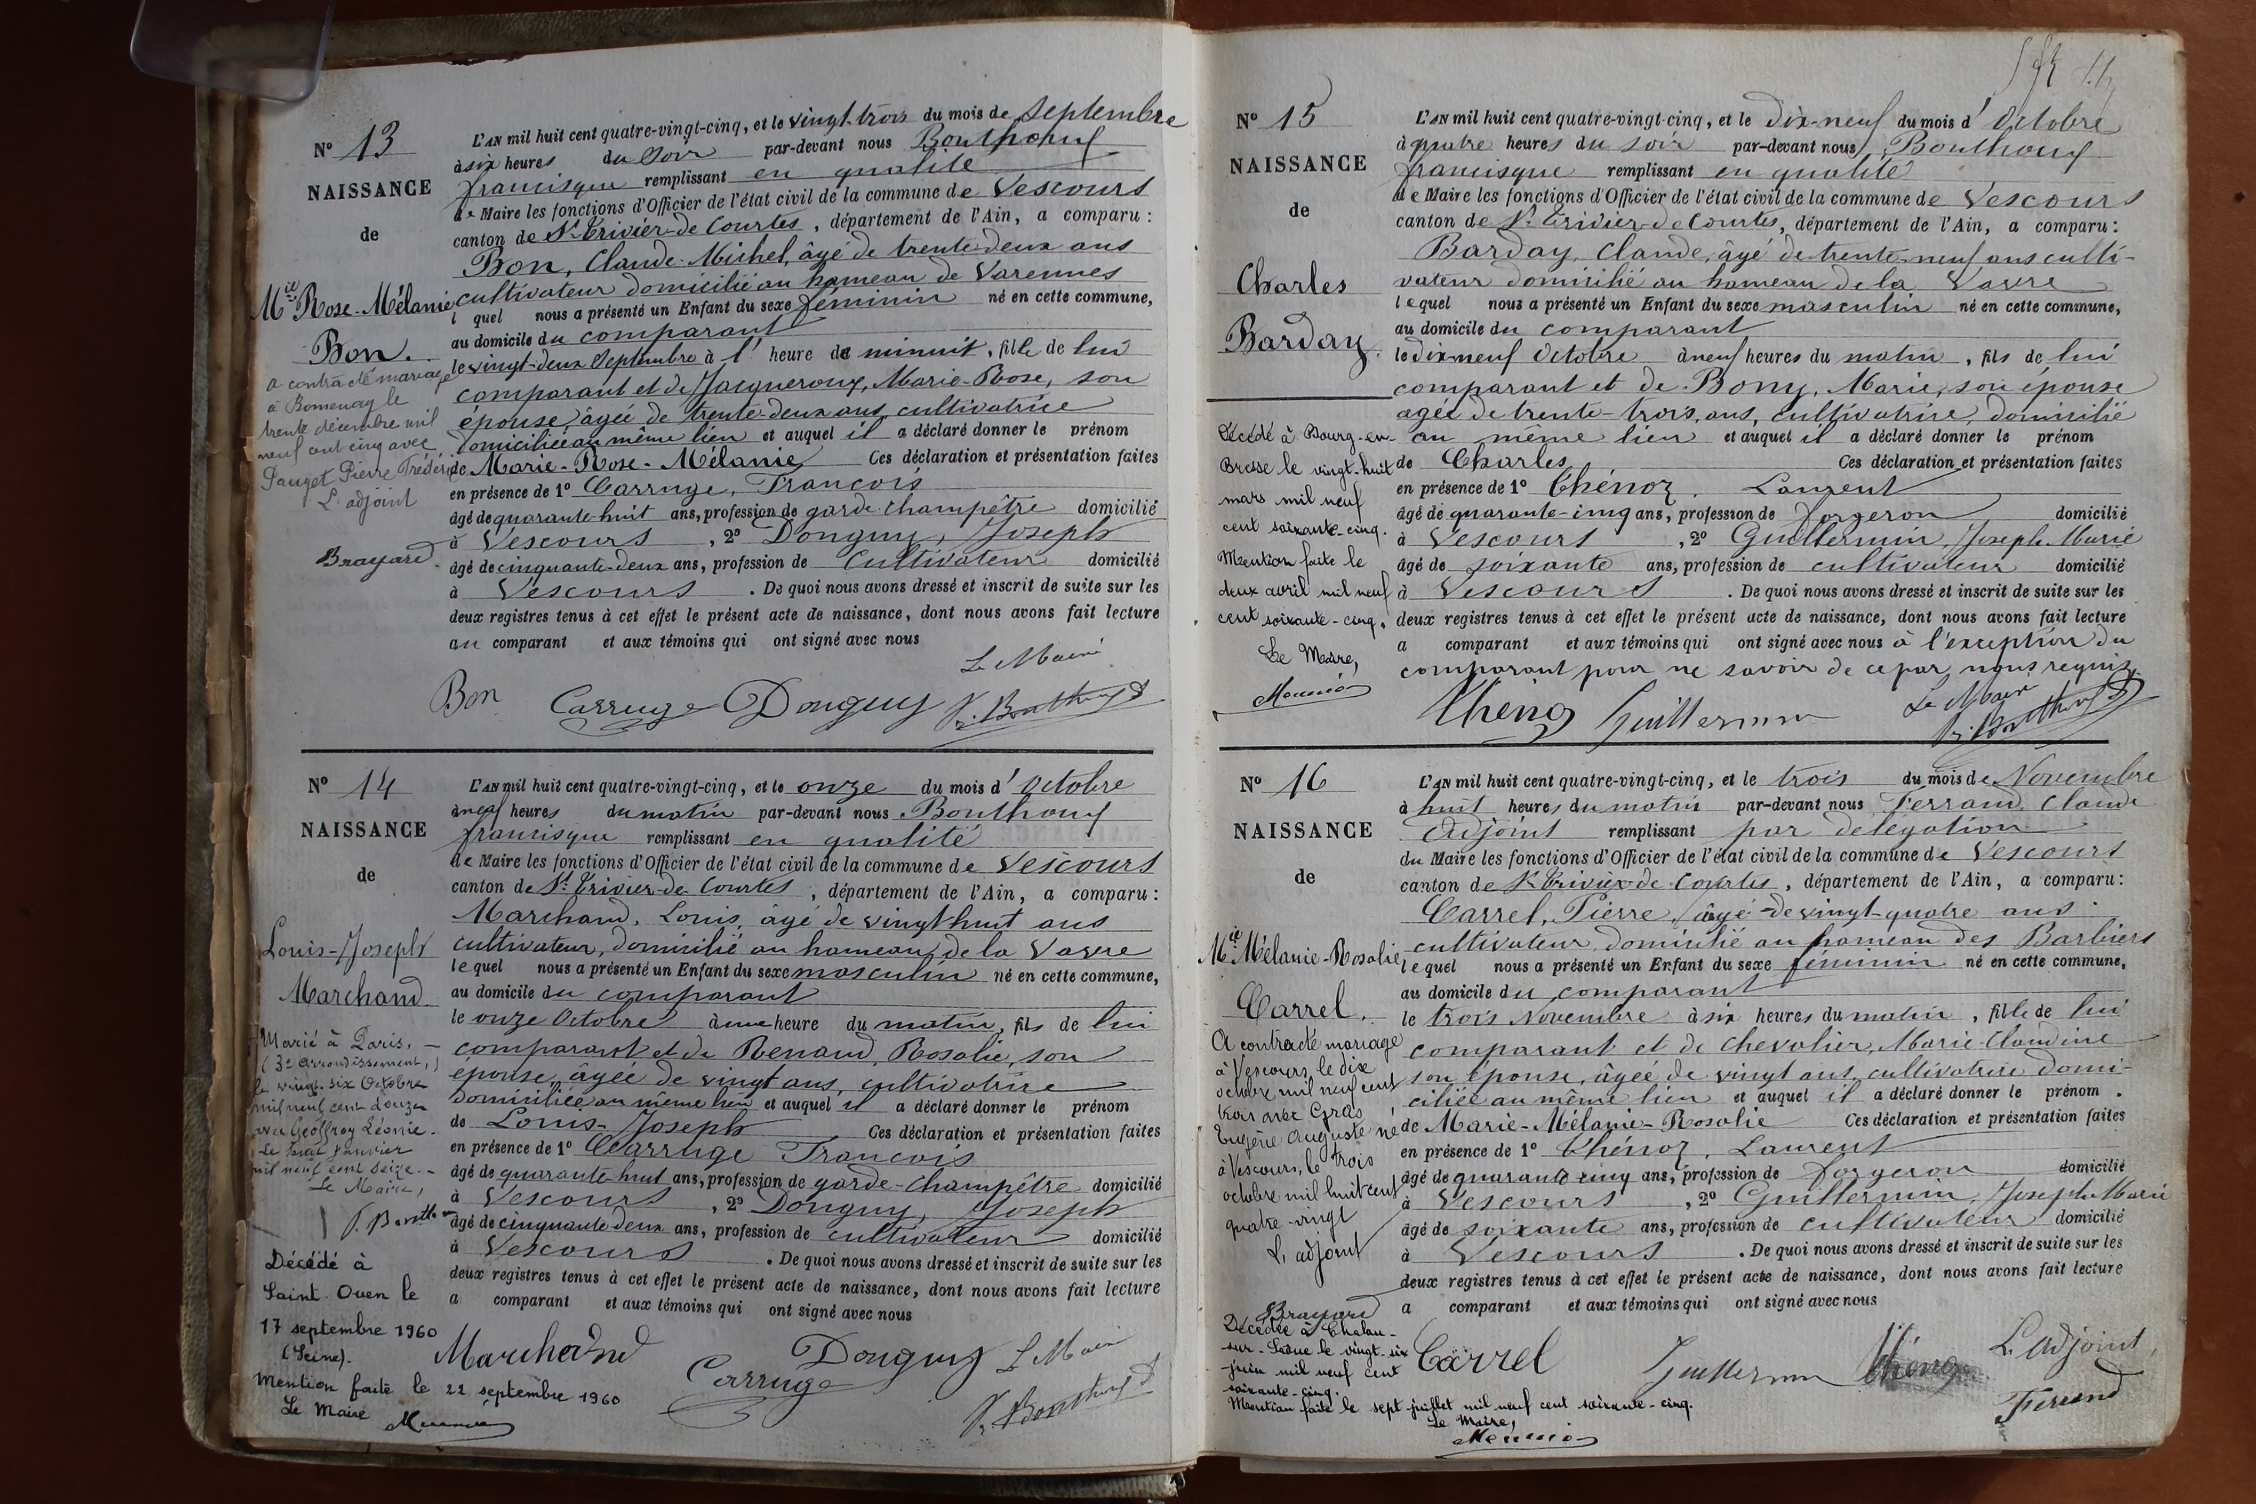 N° 13
NAISSANCE
de
Mie Rose-Mélanie
Bon.
a contracté mariage
à Romenay le
trente décembre mil
neuf cent cinq avec
Pauget Pierre Frédéric
L'adjoint
Brayard
L'AN mil huit cent quatre-vingt-cinq, et le vingt-trois du mois de Septembre
à six heures du soir par-devant nous Bouthouy
francisque remplissant en qualité
de Maire les fonctions d'Officier de l'état civil de la commune de Vescours
canton de St Trivier-de-Courtes, département de l'Ain, a comparu :
Bon, Claude-Michel, âgé de trente-deux ans
cultivateur domicilié au hameau de Varennes
l quel nous a présenté un Enfant du sexe féminin né en cette commune,
au domicile du comparant
le vingt-deux Septembre à l' heure de minuit, fille de lui
comparant et de Jacqueroux, Marie-Rose, son
épouse, âgée de trente-deux ans, cultivatrice
domiciliée au même lieu et auquel il a déclaré donner le prénom
de Marie-Rose-Mélanie Ces déclaration et présentation faites
en présence de 1° Carruge, François
âgé de quarante-huit ans, profession de garde-champêtre domicilié
à Vescours, 2° Donguy, Joseph
âgé de cinquante-deux ans, profession de Cultivateur domicilié
à Vescours. De quoi nous avons dressé et inscrit de suite sur les
deux registres tenus à cet effet le présent acte de naissance, dont nous avons fait lecture
au comparant et aux témoins qui ont signé avec nous
Le Maire
Bon Carruge Donguy F. Bouthouy
N° 14
NAISSANCE
de
Louis-Joseph
Marchand
Marié à Paris,
(3e arrondissement,)
le vingt-six Octobre
mil neuf cent douze
avec Geoffroy Léonie.
Le Janvier
mil neuf cent seize.
Le Maire,
Décédé à
Saint-Ouen le
17 septembre 1960
(Seine).
Mention faite le 22 septembre 1960
Le Maire
Meunier
L'AN mil huit cent quatre-vingt-cinq, et le onze du mois d'Octobre
à neuf heures du matin par-devant nous Bouthouy
francisque remplissant en qualité
de Maire les fonctions d'Officier de l'état civil de la commune de Vescours
canton de St Trivier-de-Courtes, département de l'Ain, a comparu :
Marchand, Louis, âgé de vingt huit ans
cultivateur, domicilié au hameau de la Vavre
lequel nous a présenté un Enfant du sexe masculin né en cette commune,
au domicile du comparant
le onze Octobre à une heure du matin, fils de lui
comparant et de Renaud, Rosalie, son
épouse, âgée de vingt ans, cultivatrice
domiciliée au même lieu et auquel il a déclaré donner le prénom
de Louis-Joseph Ces déclaration et présentation faites
en présence de 1° Carruge François
âgé de quarante-huit ans, profession de garde-champêtre domicilié
à Vescours, 2° Donguy, Joseph
âgé de cinquante-deux ans, profession de cultivateur domicilié
à Vescours. De quoi nous avons dressé et inscrit de suite sur les
deux registres tenus à cet effet le présent acte de naissance, dont nous avons fait lecture
a comparant et aux témoins qui ont signé avec nous
Marchand Carruge Donguy Le Maire
F. Bouthouy
N° 15
NAISSANCE
de
Charles
Barday.
Décédé à Bourg-en-
Bresse le vingt-huit
mars mil neuf
cent soixante-cinq.
Mention faite le
deux avril mil neuf
cent soixante-cinq.
Le Maire,
Meunier
L'AN mil huit cent quatre-vingt-cinq, et le dix-neuf du mois d'Octobre
à quatre heures du soir par-devant nous Bouthouy
francisque remplissant en qualité
de Maire les fonctions d'Officier de l'état civil de la commune de Vescours
canton de St Trivier-de-Courtes, département de l'Ain, a comparu :
Barday, Claude, âgé de trente-neuf ans culti-
vateur domicilié au hameau de la Vavre
lequel nous a présenté un Enfant du sexe masculin né en cette commune,
au domicile du comparant
le dix-neuf Octobre à neuf heures du matin, fils de lui
comparant et de Bony, Marie, son épouse
agée de trente-trois ans, cultivatrice, domicilié
au même lieu et auquel il a déclaré donner le prénom
de Charles Ces déclaration et présentation faites
en présence de 1° Thénoz, Laurent
âgé de quarante-cinq ans, profession de forgeron domicilié
à Vescours, 2° Guillermin, Joseph-Marie
âgé de soixante ans, profession de cultivateur domicilié
à Vescours. De quoi nous avons dressé et inscrit de suite sur les
deux registres tenus à cet effet le présent acte de naissance, dont nous avons fait lecture
a comparant et aux témoins qui ont signé avec nous à l'exception du
comparant pour ne savoir de ce par nous requis.
Thénoz Guillermin Le Maire
F. Bouthouy
N° 16
NAISSANCE
de
Mie Mélanie-Rosalie
Carrel.
A contracté mariage
à Vescours, le dix
octobre mil neuf cent
trois avec Gras
Eugène Auguste né
à Vescours, le trois
octobre mil huit cent
quatre-vingt
L'adjoint
Brayard
Décédée à Chalon-
sur-Saône le vingt-six
juin mil neuf cent
soixante-cinq.
Mention faite le sept juillet mil neuf cent soixante-cinq.
Le Maire,
Meunier
L'AN mil huit cent quatre-vingt-cinq, et le trois du mois de Novembre
à huit heures du matin par-devant nous Ferrand Claude
Adjoint remplissant par délégation
du Maire les fonctions d'Officier de l'état civil de la commune de Vescours
canton de St Trivier-de-Courtes, département de l'Ain, a comparu :
Carrel, Pierre, âgé de vingt-quatre ans
cultivateur, domicilié au hameau des Barbiers
lequel nous a présenté un Enfant du sexe féminin né en cette commune,
au domicile du comparant
le trois Novembre à six heures du matin, fille de lui
comparant et de Chevalier, Marie-Claudine
son épouse, âgée de vingt ans, cultivatrice domi-
ciliée au même lieu et auquel il a déclaré donner le prénom.
de Marie-Mélanie-Rosalie Ces déclaration et présentation faites
en présence de 1° Thénoz, Laurent
âgé de quarante cinq ans, profession de forgeron domicilié
à Vescours, 2° Guillermin, Joseph-Marie
âgé de soixante ans, profession de cultivateur domicilié
à Vescours. De quoi nous avons dressé et inscrit de suite sur les
deux registres tenus à cet effet le présent acte de naissance, dont nous avons fait lecture
a comparant et aux témoins qui ont signé avec nous
Carrel Guillermin Thénoz L'adjoint,
Ferrand